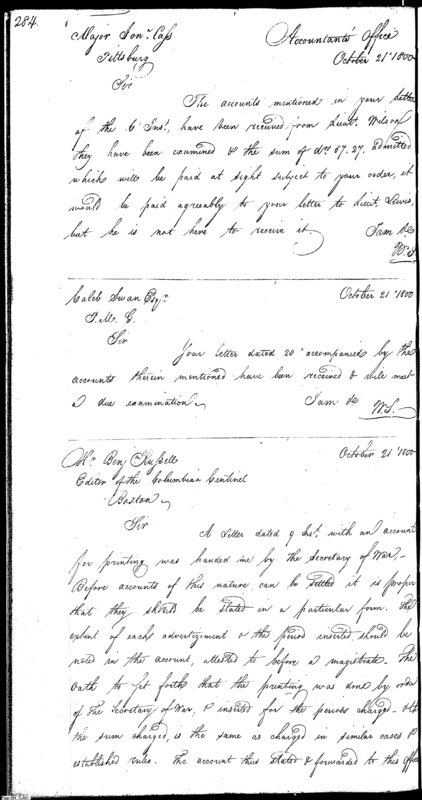 284.
Major Jonn. Cass
Accountants Office
Pittsburg
October 21st 1800
Sir
The accounts mentioned in your letter
of the 6 Inst, have been received from Lieut. Wilson
they have been examined & the sum of drs 57.27, admitted
which will be paid at sight subject to your order, it
would be paid agreeably to your letter to Lieut. Lewis,
but he is not here to receive it.
I am &c
W. S.
Caleb Swan Esqr.
October 21st 1800
P. M. G.
Sir
Your letter dated 20th accompanied by the
accounts therein mentioned have been received & will meet
a due examination.
I am &c
W. S.
Mr. Benj. Russell
October 21st 1800
Editor of the Columbian Centinel
Boston
Sir
A Letter dated 9 Inst. with an account
for printing was handed me by the Secretary of War.
Before accounts of this nature can be settled it is proper
that they should be stated in a particular form. The
extent of each advertizment & the period inserted should be
noted in the account, attested to before a magistrate. The
Oath to set forth that the printing was done by order
of The Secretary of War, & inserted for the periods charged,
the sum charged, is the same as charged in similar cases &
established rules. The account thus stated & forwarded to this Office